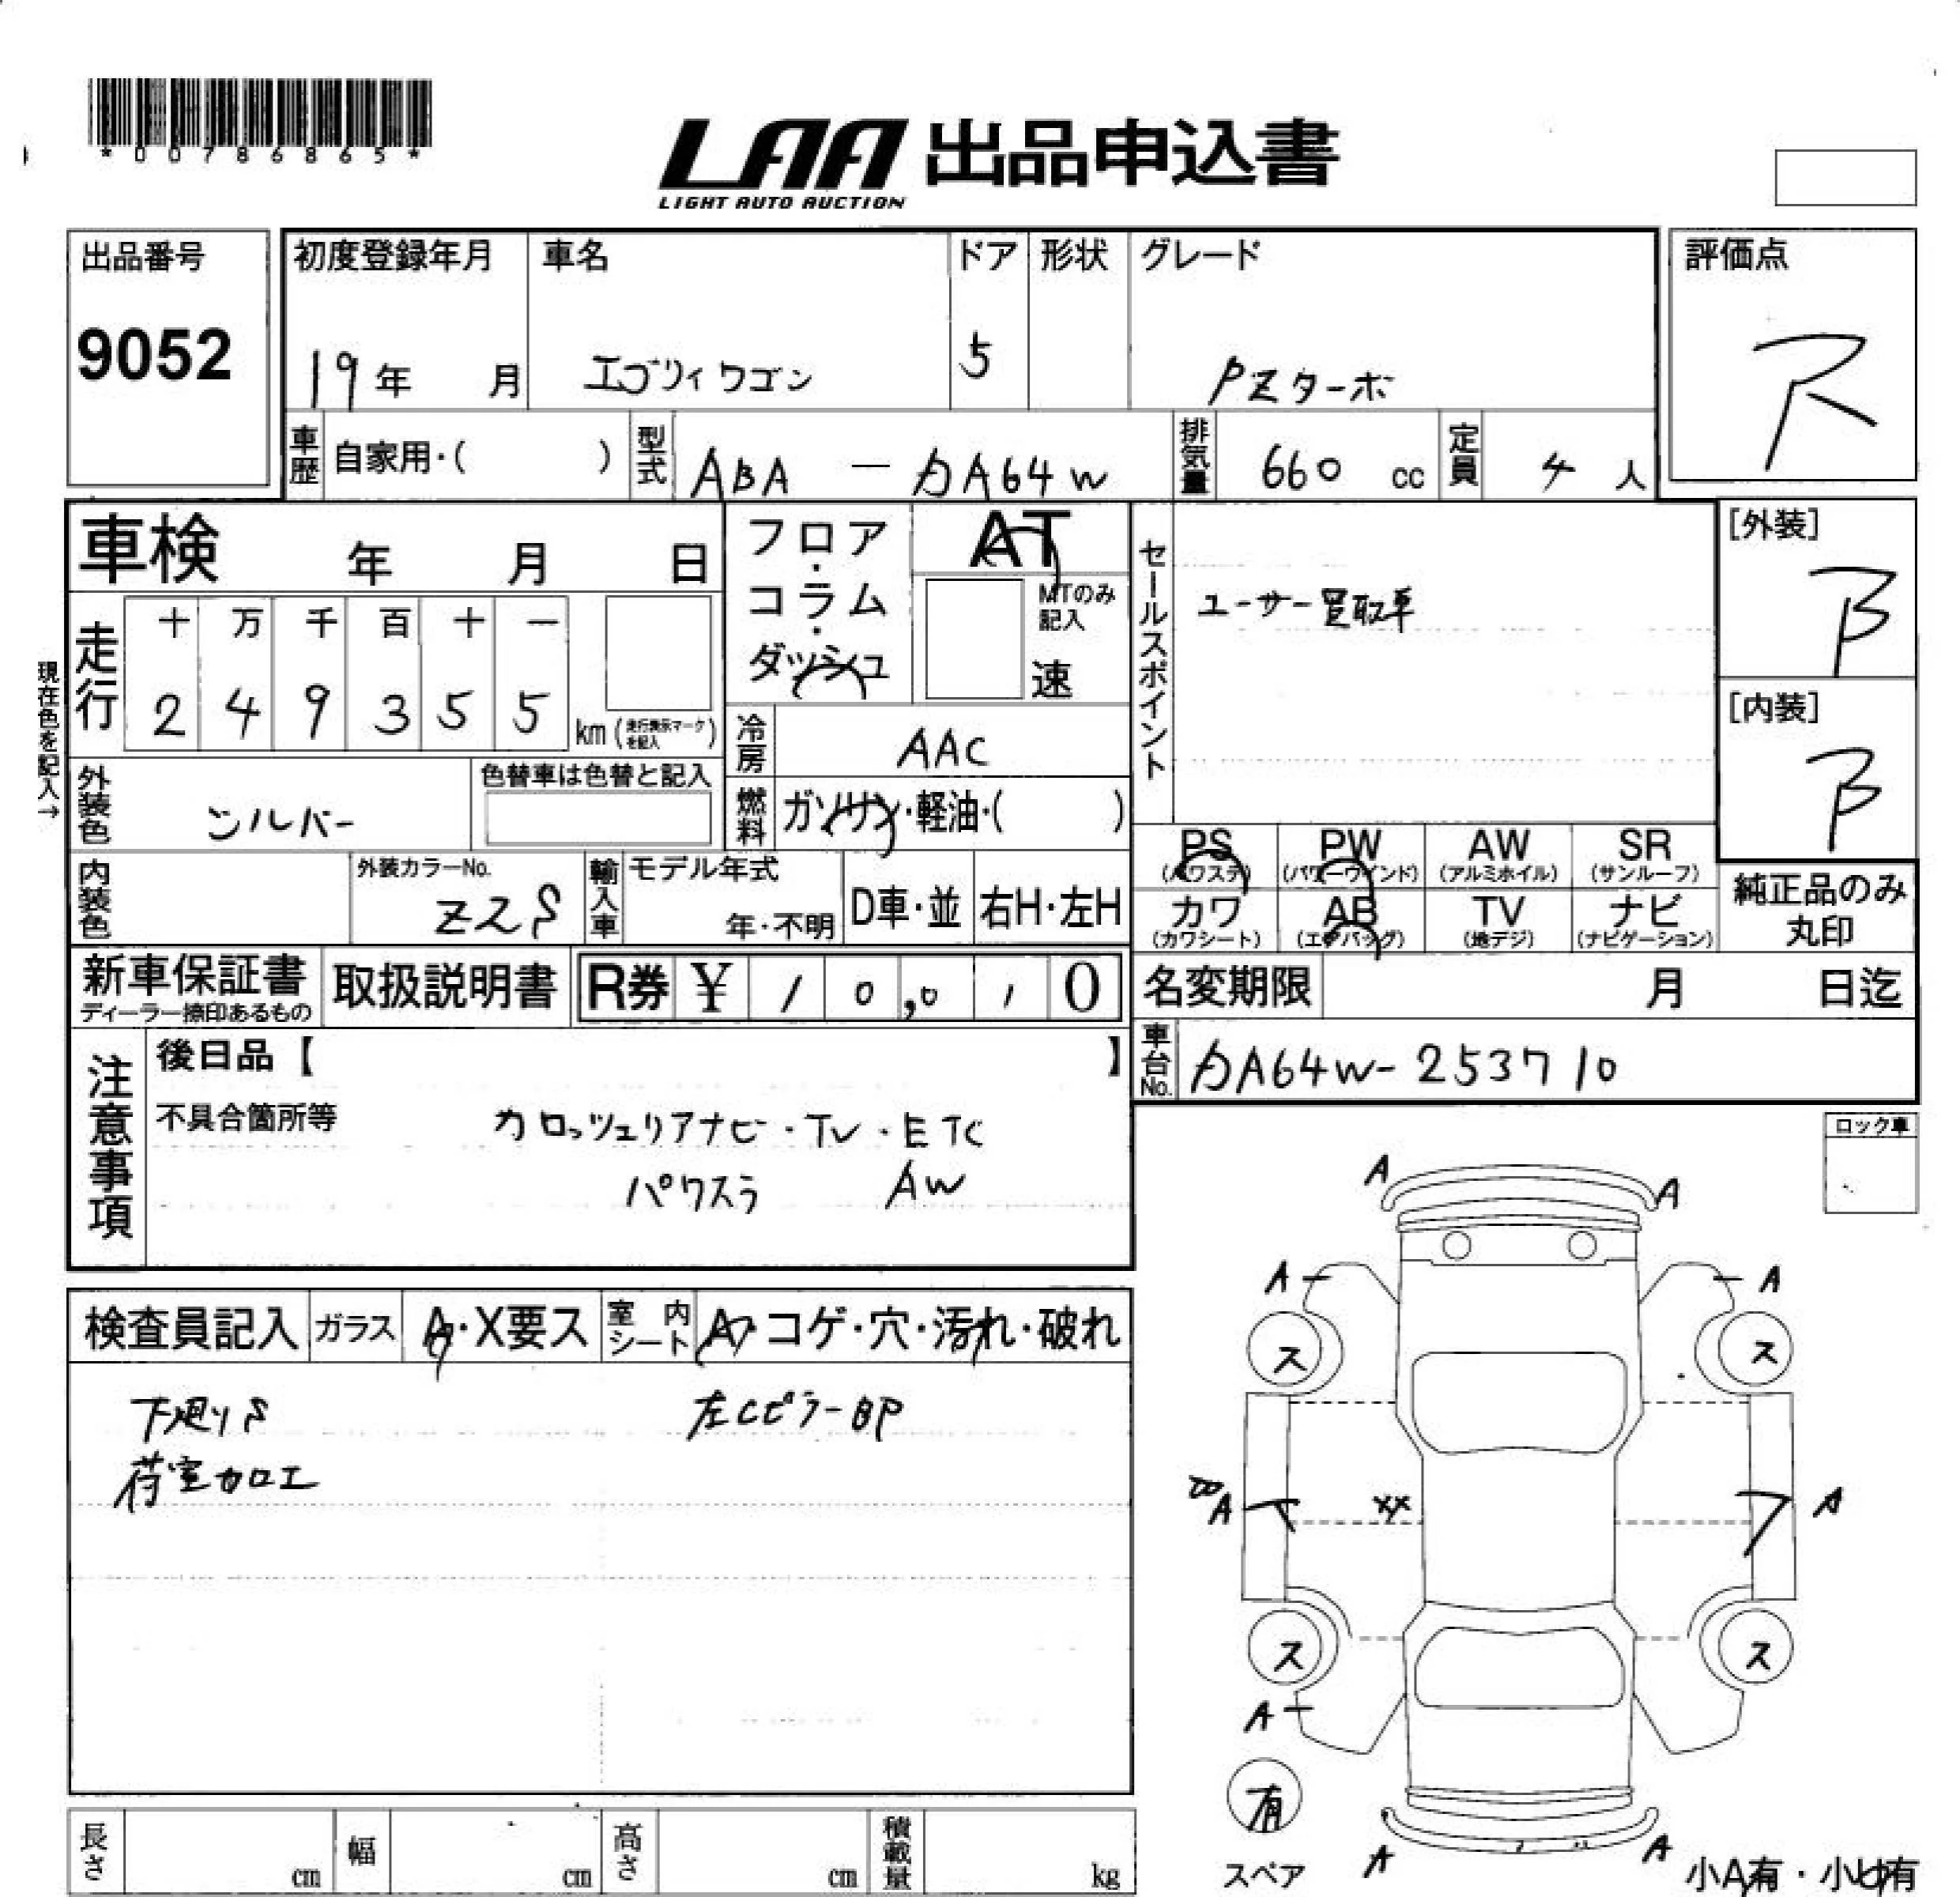 *00786865*
LAA 出品申込書
LIGHT AUTO AUCTION
出品番号
9052
初度登録年月
19年 月
車名
エブリィワゴン
ドア
5
形状
グレード
PZターボ
評価点
R
車歴 自家用・( )
型式 ABA — DA64W
排気量 660 cc
定員 4 人
車検 年 月 日
フロア・コラム・ダッシュ
AT
MTのみ記入
速
セールスポイント
ユーザー買取車
[外装]
B
[内装]
B
現在色を記入→
走行
十 万 千 百 十 一
2 4 9 3 5 5
km (走行表示マークを記入)
冷房 AAC
外装色 シルバー
色替車は色替と記入
燃料 ガソリン・軽油・( )
PS (パワステ)
PW (パワーウインド)
AW (アルミホイル)
SR (サンルーフ)
カワ (カワシート)
AB (エアバッグ)
TV (地デジ)
ナビ (ナビゲーション)
純正品のみ丸印
内装色
外装カラーNo.
Z2S
輸入車 モデル年式
年・不明
D車・並
右H・左H
新車保証書
ディーラー捺印あるもの
取扱説明書
R券 ¥ 1 0, 0 1 0
名変期限 月 日迄
車台No. DA64W-253710
注意事項
後日品【 】
不具合箇所等
カロッツェリアナビ・TV・ETC
パワスラ AW
ロック車
検査員記入
ガラス A・X要ス
室内シート A・コゲ・穴・汚れ・破れ
下廻りS
左CピラーBP
荷室加工
A A
A A
ス ス
A XX A
ス ス
A
有
スペア
A A
小A有・小U有
長さ cm
幅 cm
高さ cm
積載量 kg